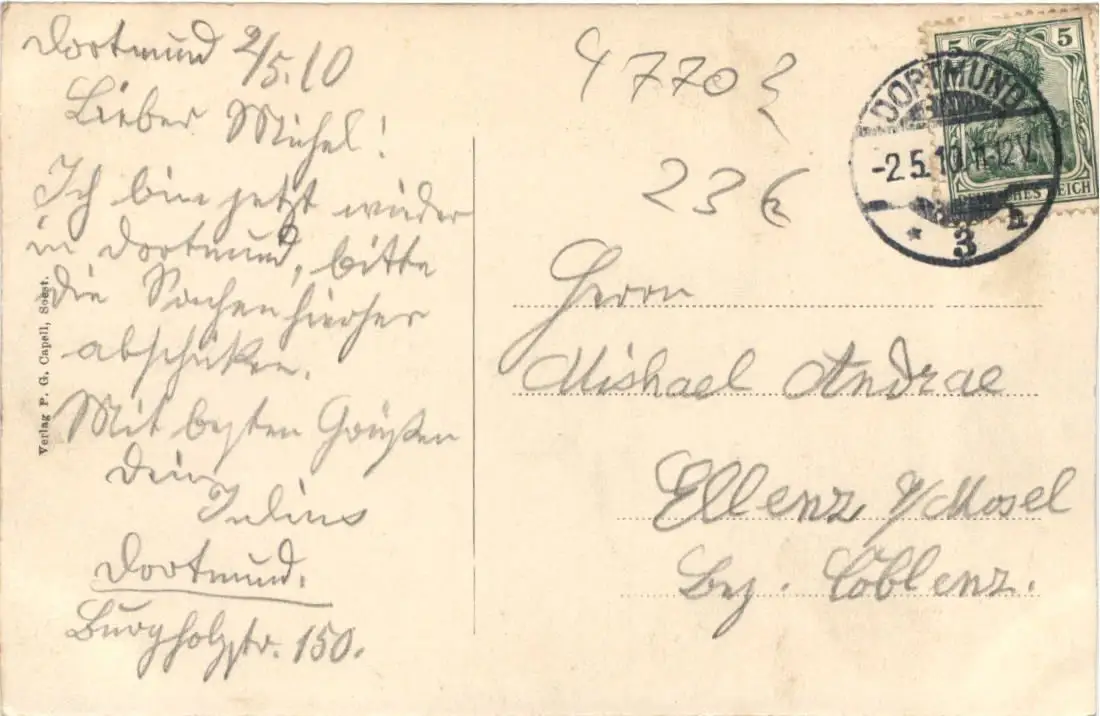 Dortmund 2/5.10
Lieber Michel!
Ich bin jetzt wieder
in Dortmund, bitte
die Sachen hierher
abschicken.
Mit besten Grüßen
Dein
Julius
Dortmund.
Burgholzstr. 150.
Verlag P. G. Capell, Soest.
4770
23 €
5 5
DEUTSCHES REICH
DORTMUND
-2.5.10.11-12V.
* 3 h
Herrn
Mishael Andrae
Ellenz a/Mosel
Bez. Coblenz.